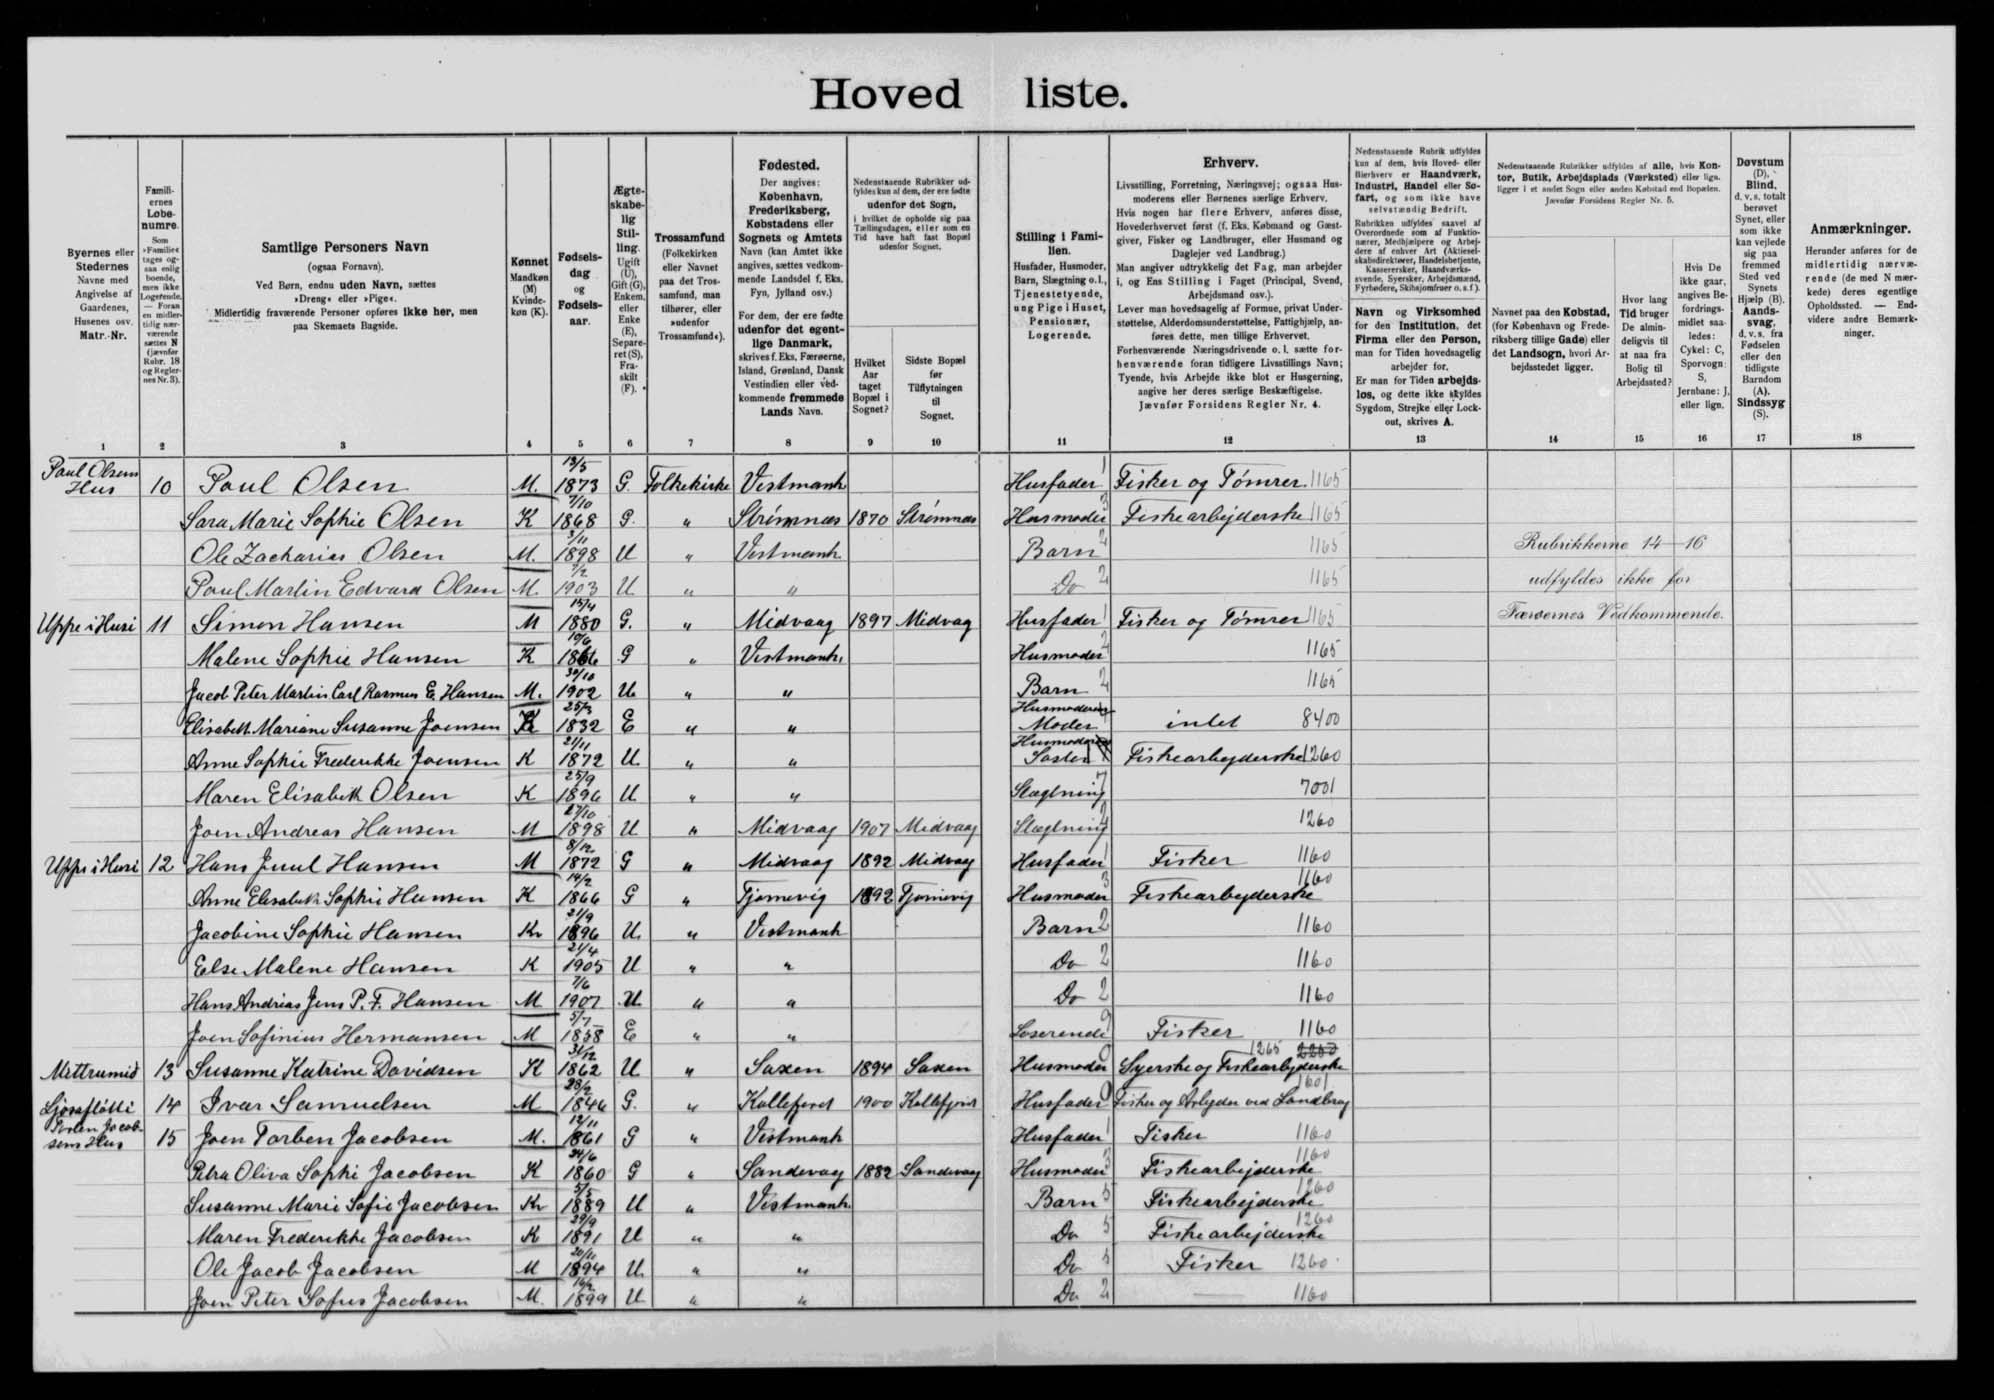 Hovedliste.
Byernes eller Stedernes Navne med Angivelse af Gaardenes, Husenes osv. Matr.-Nr.
Familiernes Løbenumre. Som »Familie« tages ogsaa enlig boende, men ikke Logerende. — Foran en midlertidig nærværende sættes N (jævnfør Rubr. 18 og Regler-nes Nr. 3).
Samtlige Personers Navn (ogsaa Fornavn). Ved Børn, endnu uden Navn, sættes »Dreng« eller »Pige«. Midlertidig fraværende Personer opføres ikke her, men paa Skemaets Bagside.
Kønnet Mandkøn (M) Kvindekøn (K).
Fødselsdag og Fødselsaar.
Ægteskabelig Stilling. Ugift (U), Gift (G), Enkem. eller Enke (E), Separeret (S), Fraskilt (F).
Trossamfund (Folkekirken eller Navnet paa det Trossamfund, man tilhører, eller »udenfor Trossamfund«).
Fødested. Der angives: København, Frederiksberg, Købstadens eller Sognets og Amtets Navn (kan Amtet ikke angives, sættes vedkommende Landsdel f. Eks. Fyn, Jylland osv.) For dem, der ere fødte udenfor det egentlige Danmark, skrives f. Eks. Færøerne, Island, Grønland, Dansk Vestindien eller vedkommende fremmede Lands Navn.
Nedenstaaende Rubrikker udfyldes kun af dem, der ere fødte udenfor det Sogn, i hvilket de opholde sig paa Tællingsdagen, eller som en Tid have haft fast Bopæl udenfor Sognet.
Hvilket Aar taget Bopæl i Sognet?
Sidste Bopæl før Tilflytningen til Sognet.
Stilling i Familien. Husfader, Husmoder, Barn, Slægtning o.l., Tjenestetyende, ung Pige i Huset, Pensionær, Logerende.
Erhverv. Livsstilling, Forretning, Næringsvej; ogsaa Husmoderens eller Børnenes særlige Erhverv. Hvis nogen har flere Erhverv, anføres disse, Hovederhvervet først (f. Eks. Købmand og Gæstgiver, Fisker og Landbruger, eller Husmand og Daglejer ved Landbrug.) Man angiver udtrykkelig det Fag, man arbejder i, og Ens Stilling i Faget (Principal, Svend, Arbejdsmand osv.). Lever man hovedsagelig af Formue, privat Understøttelse, Alderdomsunderstøttelse, Fattighjælp, anføres dette, men tillige Erhvervet. Forhenværende Næringsdrivende o. l. sætte forhenværende foran tidligere Livsstillings Navn; Tyende, hvis Arbejde ikke blot er Husgerning, angive her deres særlige Beskæftigelse. Jævnfør Forsidens Regler Nr. 4.
Nedenstaaende Rubrik udfyldes kun af dem, hvis Hoved- eller Bierhverv er Haandværk, Industri, Handel eller Søfart, og som ikke have selvstændig Bedrift. Rubrikken udfyldes saavel af Overordnede som af Funktionærer, Medhjælpere og Arbejdere af enhver Art (Aktieselskabsdirektører, Handelsbetjente, Kasserersker, Haandværkssvende, Syersker, Arbejdsmænd, Fyrbødere, Skibsjomfruer o. s. f.).
Navn og Virksomhed for den Institution, det Firma eller den Person, man for Tiden hovedsagelig arbejder for. Er man for Tiden arbejdsløs, og dette ikke skyldes Sygdom, Strejke eller Lockout, skrives A.
Nedenstaaende Rubrikker udfyldes af alle, hvis Kontor, Butik, Arbejdsplads (Værksted) eller lign. ligger i et andet Sogn eller anden Købstad end Bopælen. Jævnfør Forsidens Regler Nr. 5.
Navnet paa den Købstad, (for København og Frederiksberg tillige Gade) eller det Landsogn, hvori Arbejdsstedet ligger.
Hvor lang Tid bruger De almindeligvis til at naa fra Bolig til Arbejdssted?
Hvis De ikke gaar, angives Befordringsmidlet saaledes: Cykel: C, Sporvogn: S, Jernbane: J, eller lign.
Døvstum (D). Blind, d. v. s. totalt berøvet Synet, eller som ikke kan vejlede sig paa fremmed Sted ved Synets Hjælp (B). Aandssvag, d. v. s. fra Fødselen eller den tidligste Barndom (A). Sindssyg (S).
Anmærkninger. Herunder anføres for de midlertidig nærværende (de med N mærkede) deres egentlige Opholdssted. — Endvidere andre Bemærkninger.
1 2 3 4 5 6 7 8 9 10 11 12 13 14 15 16 17 18
Paul Olsens Hus 10 Poul Olsen M. 13/5 1873 G. Folkekirke Vestmanh Husfader 1 Fisker og Tømrer 1165
Sara Marie Sophie Olsen K 7/10 1868 G. " Strømnæs 1870 Strømnæs Husmoder 3 Fiskearbejderske 1165
Ole Zacharias Olsen M. 3/11 1898 U " Vestmanh Barn 2 1165 Rubrikkerne 14—16
Poul Martin Edvard Olsen M. 7/2 1903 U " " Do 2 1165 udfyldes ikke for
Uppe i Husi 11 Simon Hansen M 15/4 1880 G. " Midvaag 1897 Midvag Husfader 1 Fisker og Tømrer 1165 Færøernes Vedkommende.
Malene Sophie Hansen K 10/6 1866 G " Vestmanh. Husmoder 2 1165
Jacob Peter Martin Carl Rasmus E. Hansen M. 30/10 1902 U. " " Barn 2 1165
Elisabeth Mariane Susanne Joensen K 25/3 1832 E " " Husmoderens Moder intet 8400
Anne Sophie Frederikke Joensen K 21/11 1872 U. " " Husmoderens Søster Fiskearbejderske 1260
Maren Elisabeth Olsen K 25/9 1896 U " " Slægtning 7 7001
Joen Andreas Hansen M 27/10 1898 U " Midvaag 1907 Midvaag Slægtning 1260
Uppe i Husi 12 Hans Juul Hansen M 8/12 1872 G " Midvaag 1892 Midvag Husfader 1 Fisker 1160
Anne Elisabeth Sophie Hansen K 14/2 1866 G " Tjørnevig 1892 Tjørnevig Husmoder 3 Fiskearbejderske 1160
Jacobine Sophie Hansen Kv 21/9 1896 U. " Vestmanh Barn 2 1160
Else Malene Hansen K 21/4 1905 U " " Do 2 1160
Hans Andrias Jens P. F. Hansen M 7/6 1907 U " " Do 2 1160
Joen Sofinius Hermansen M 5/7 1858 E " " Loserende 9 Fisker 1160
Mittrumið 13 Susanne Katrine Davidsen K 31/12 1862 U " Saxen 1894 Saxen Husmoder Syerske og Fiskearbejderske 1265
14 Ivar Samuelsen M 28/2 1846 G. " Kollefjord 1900 Kollefjord Husfader 9 Fisker og Arbejder ved Landbrug 1601
Jacobsens Hus 15 Joen Torben Jacobsen M. 12/11 1861 G " Vestmanh Husfader 1 Fisker 1160
Petra Oliva Sophi Jacobsen K 24/6 1860 G " Sandevag 1882 Sandevaag Husmoder 3 Fiskearbejderske 1160
Susanne Marie Sofie Jacobsen Kv 5/5 1889 U " Vestmanh. Barn 5 Fiskearbejderske 1260
Maren Frederikke Jacobsen K 29/9 1891 U " " Do 5 Fiskearbejderske 1260
Ole Jacob Jacobsen M 20/11 1894 U. " " Do 5 Fisker 1260
Joen Peter Sofus Jacobsen M. 16/2 1899 U " " Do 2 — 1160